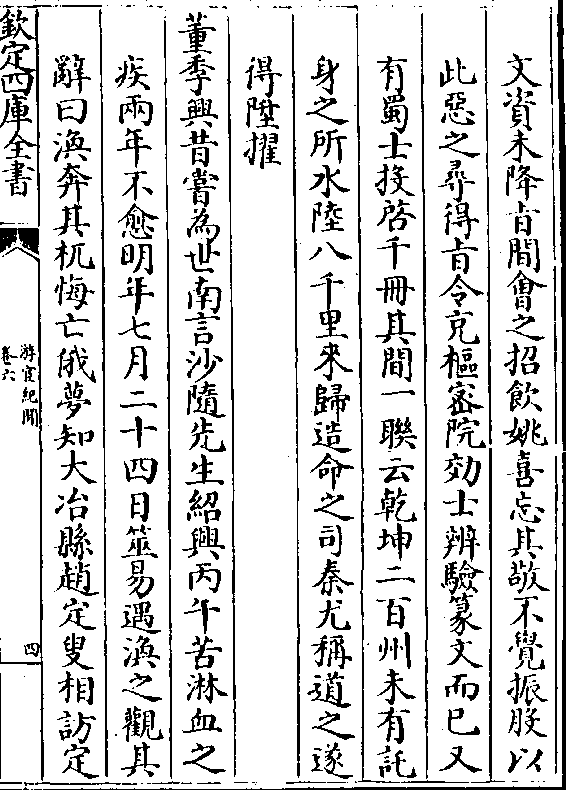 文資未降㫖間㑹之招飲姚喜忘其敬不覺振股以
此惡之尋得㫖令充樞宻院効士辨驗篆文而已又
有蜀士投啓千冊其間一聯云乾坤二百州未有託
身之所水陸八千里來歸造命之司秦尤稱道之遂
得陞擢
董季興昔嘗為世南言沙隨先生紹興丙午苦淋血之
疾兩年不愈明年七月二十四日筮易遇渙之觀其
辭曰渙奔其杌悔亡俄夢知大冶縣趙定叟相訪定
欽定四庫全書
游宦紀聞
卷六
四